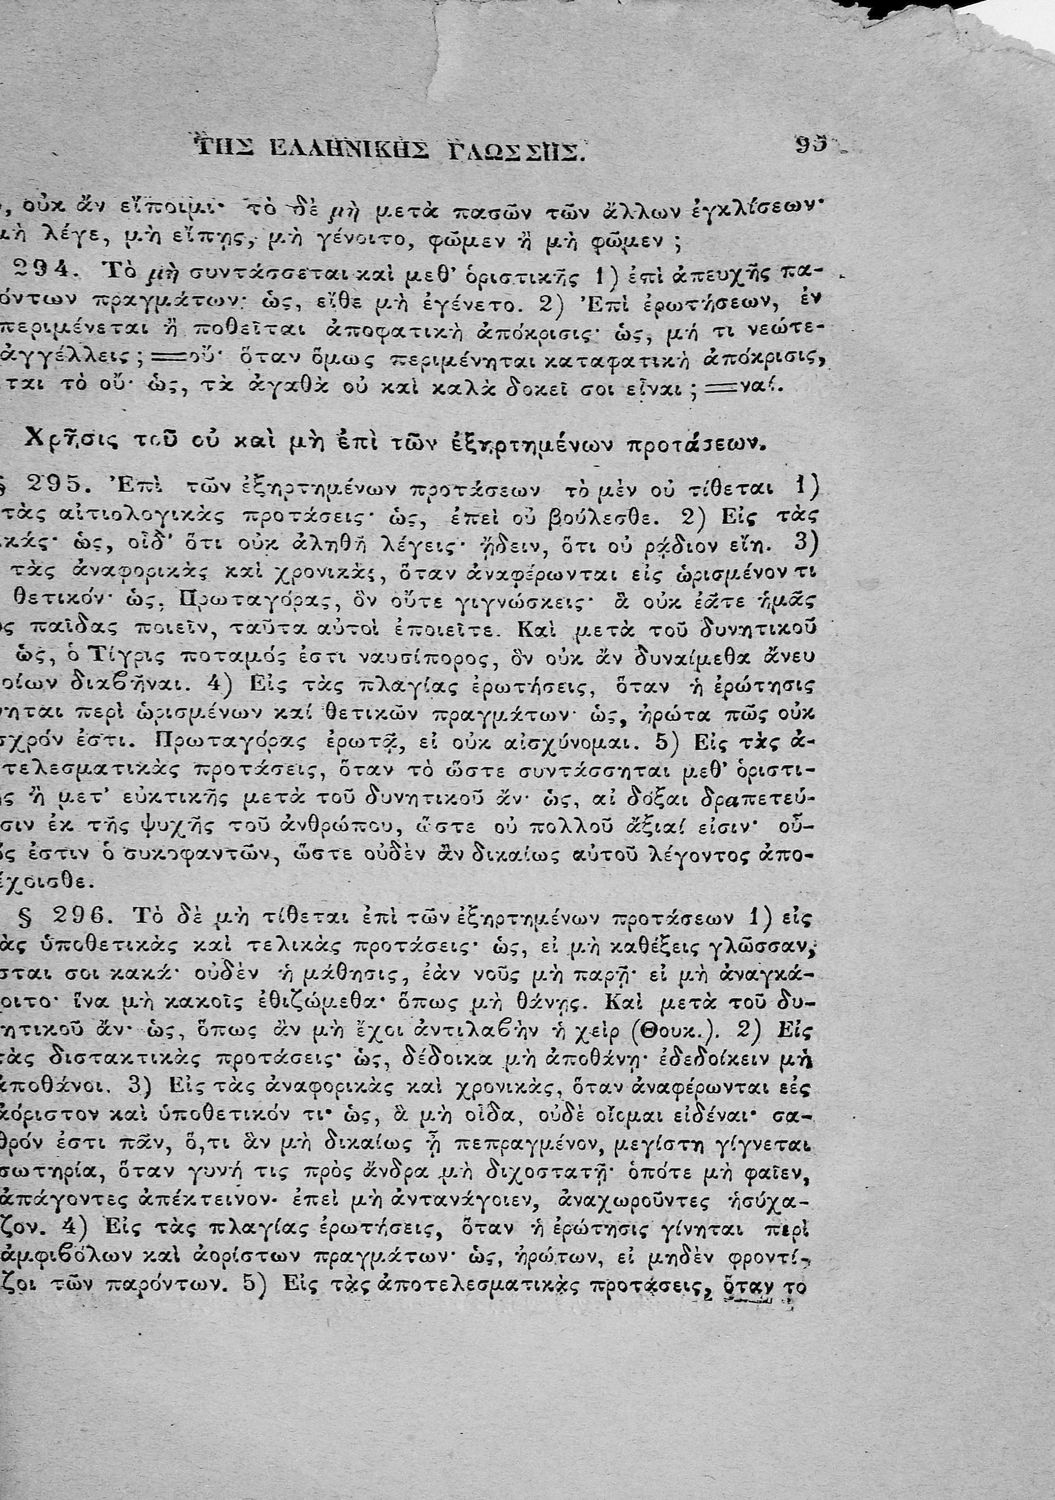 ΤΗΣ ΕΛΛΗΝΙΚΗΣ ΓΛΩΣΣΗΣ. 95
, οὐκ ἄν εἴποιμι· τὸ δὲ μὴ μετὰ πασῶν τῶν ἄλλων ἐγκλίσεων·
μὴ λέγε, μὴ εἴπῃς, μὴ γένοιτο, φῶμεν ἢ μὴ φῶμεν ;
294. Τὸ μὴ συντάσσεται καὶ μεθ' ὁριστικῆς 1) ἐπὶ ἀπευχῆς πα-
όντων πραγμάτων· ὡς, εἴθε μὴ ἐγένετο. 2) Ἐπὶ ἐρωτήσεων, ἐν
περιμένεται ἢ ποθεῖται ἀποφατικὴ ἀπόκρισις· ὡς, μή τι νεώτε-
ἀγγέλλεις ; =οὔ· ὅταν ὅμως περιμένηται καταφατικὴ ἀπόκρισις,
ται τὸ οὔ· ὡς, τὰ ἀγαθὰ οὐ καὶ καλὰ δοκεῖ σοι εἶναι ; =ναί.
Χρῆσις τοῦ οὐ καὶ μὴ ἐπὶ τῶν ἐξηρτημένων προτάσεων.
§ 295. Ἐπὶ τῶν ἐξηρτημένων προτάσεων τὸ μὲν οὐ τίθεται 1)
τὰς αἰτιολογικὰς προτάσεις· ὡς, ἐπεὶ οὐ βούλεσθε. 2) Εἰς τὰς
κάς· ὡς, οἶδ' ὅτι οὐκ ἀληθῆ λέγεις· ᾔδειν, ὅτι οὐ ῥᾴδιον εἴη. 3)
τὰς ἀναφορικὰς καὶ χρονικὰς, ὅταν ἀναφέρωνται εἰς ὡρισμένον τι
θετικόν· ὡς, Πρωταγόρας, ὃν οὔτε γιγνώσκεις· ἃ οὐκ ἐᾶτε ἡμᾶς
ς παῖδας ποιεῖν, ταῦτα αὐτοὶ ἐποιεῖτε. Καὶ μετὰ τοῦ δυνητικοῦ
ὡς, ὁ Τίγρις ποταμός ἐστι ναυσίπορος, ὃν οὐκ ἂν δυναίμεθα ἄνευ
οίων διαβῆναι. 4) Εἰς τὰς πλαγίας ἐρωτήσεις, ὅταν ἡ ἐρώτησις
νηται περὶ ὡρισμένων καί θετικῶν πραγμάτων· ὡς, ἠρώτα πῶς οὐκ
σχρόν ἐστι. Πρωταγόρας ἐρωτᾷ, εἰ οὐκ αἰσχύνομαι. 5) Εἰς τὰς ἀ-
τελεσματικὰς προτάσεις, ὅταν τὸ ὥστε συντάσσηται μεθ' ὁριστι-
ς ἢ μετ' εὐκτικῆς μετὰ τοῦ δυνητικοῦ ἄν· ὡς, αἱ δόξαι δραπετεύ-
σιν ἐκ τῆς ψυχῆς τοῦ ἀνθρώπου, ὥστε οὐ πολλοῦ ἄξιαί εἰσιν· οὗ-
ς ἐστιν ὁ συκοφαντῶν, ὥστε οὐδὲν ἂν δικαίως αὐτοῦ λέγοντος ἀπο-
έχοισθε.
§ 296. Τὸ δὲ μὴ τίθεται ἐπὶ τῶν ἐξηρτημένων προτάσεων 1) εἰς
ὰς ὑποθετικὰς καὶ τελικὰς προτάσεις· ὡς, εἰ μὴ καθέξεις γλῶσσαν,
σται σοι κακά· οὐδὲν ἡ μάθησις, ἐὰν νοῦς μὴ παρῇ· εἰ μὴ ἀναγκά-
οιτο· ἵνα μὴ κακοῖς ἐθιζώμεθα· ὅπως μὴ θάνῃς. Καὶ μετὰ τοῦ δυ-
ητικοῦ ἄν· ὡς, ὅπως ἂν μὴ ἔχοι ἀντιλαβὴν ἡ χεὶρ (Θουκ.). 2) Εἰς
τὰς διστακτικὰς προτάσεις· ὡς, δέδοικα μὴ ἀποθάνῃ· ἐδεδοίκειν μὴ
ἀποθάνοι. 3) Εἰς τὰς ἀναφορικὰς καὶ χρονικὰς, ὅταν ἀναφέρωνται εἰς
ἀόριστον καὶ ὑποθετικόν τι· ὡς, ἃ μὴ οἶδα, οὐδὲ οἴομαι εἰδέναι· σα-
θρόν ἐστι πᾶν, ὅ,τι ἂν μὴ δικαίως ᾖ πεπραγμένον, μεγίστη γίγνεται
σωτηρία, ὅταν γυνή τις πρὸς ἄνδρα μὴ διχοστατῇ· ὁπότε μὴ φαῖεν,
ἀπάγοντες ἀπέκτεινον· ἐπεὶ μὴ ἀντανάγοιεν, ἀναχωροῦντες ἡσύχα-
ζον. 4) Εἰς τὰς πλαγίας ἐρωτήσεις, ὅταν ἡ ἐρώτησις γίνηται περὶ
ἀμφιβόλων καὶ ἀορίστων πραγμάτων· ὡς, ἠρώτων, εἰ μηδὲν φροντί-
ζοι τῶν παρόντων. 5) Εἰς τὰς ἀποτελεσματικὰς προτάσεις, ὅταν τὸ